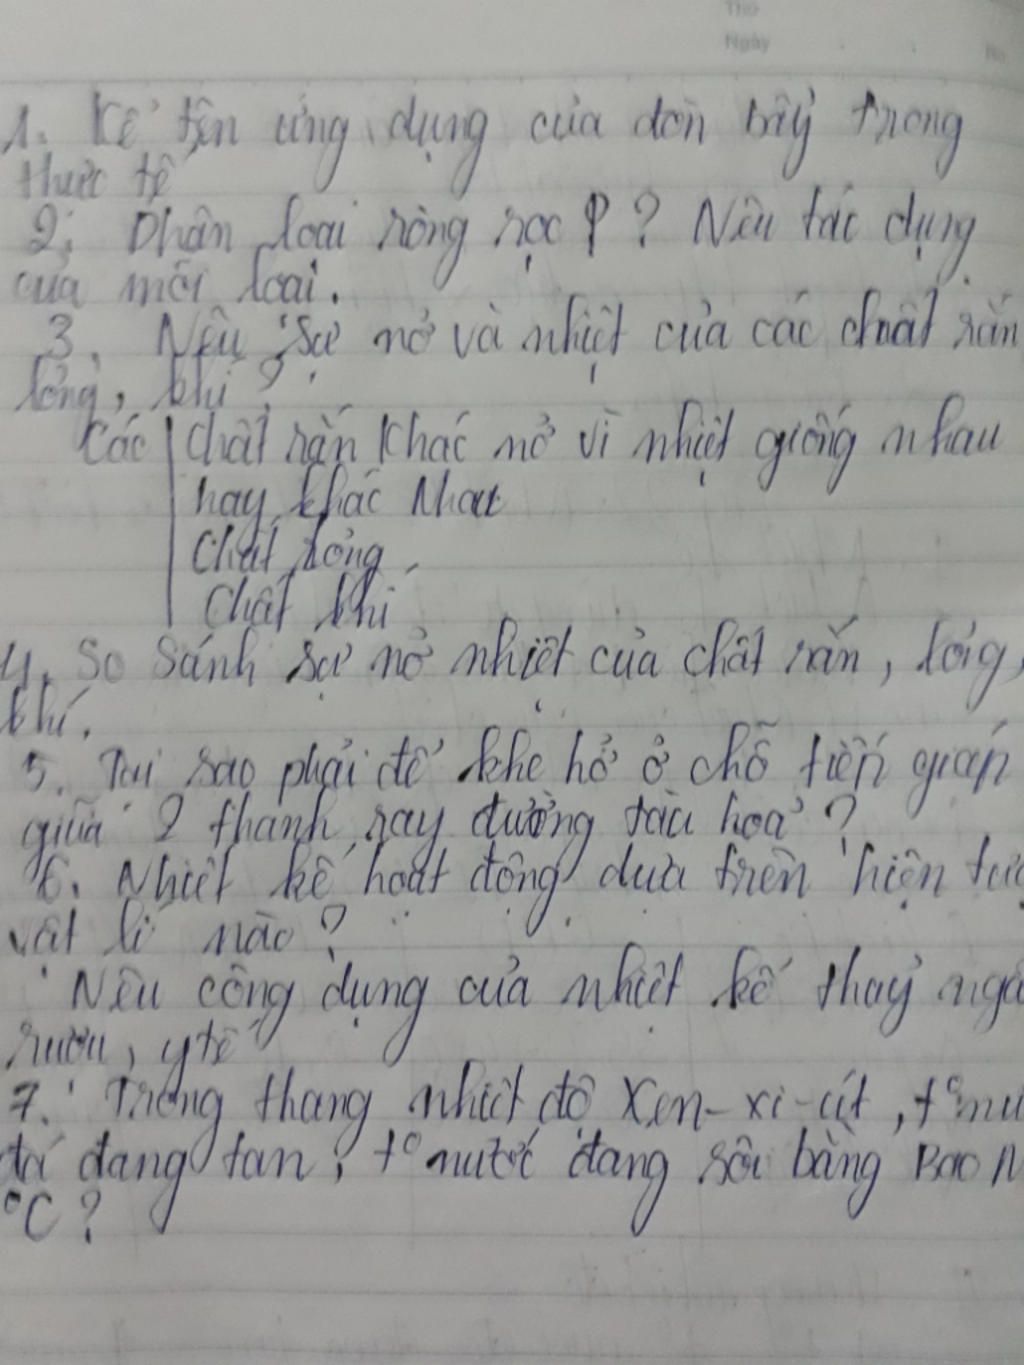 Thứ
Ngày
No.
1. Kể tên ứng dụng của đòn bẩy trong
thực tế
2. Phân loại ròng rọc ? Nêu tác dụng
của mỗi loại.
3. Nêu sự nở và nhiệt của các chất rắn
lỏng, khí ?
Các chất rắn khác nở vì nhiệt giống nhau
hay khác nhau
Chất lỏng
Chất khí
4. So sánh sự nở nhiệt của chất rắn, lỏng,
khí.
5. Tại sao phải để khe hở ở chỗ tiến gián
giữa 2 thanh ray đường tàu hoả ?
6. Nhiệt kế hoạt động dựa trên hiện
vật lí nào ?
Nêu công dụng của nhiệt kế thaỷ
rượu, y tế
7. Trong thang nhiệt độ Xen-xi-út, t°
đá đang tan, t° nước đang sôi bằng Bao
°C ?